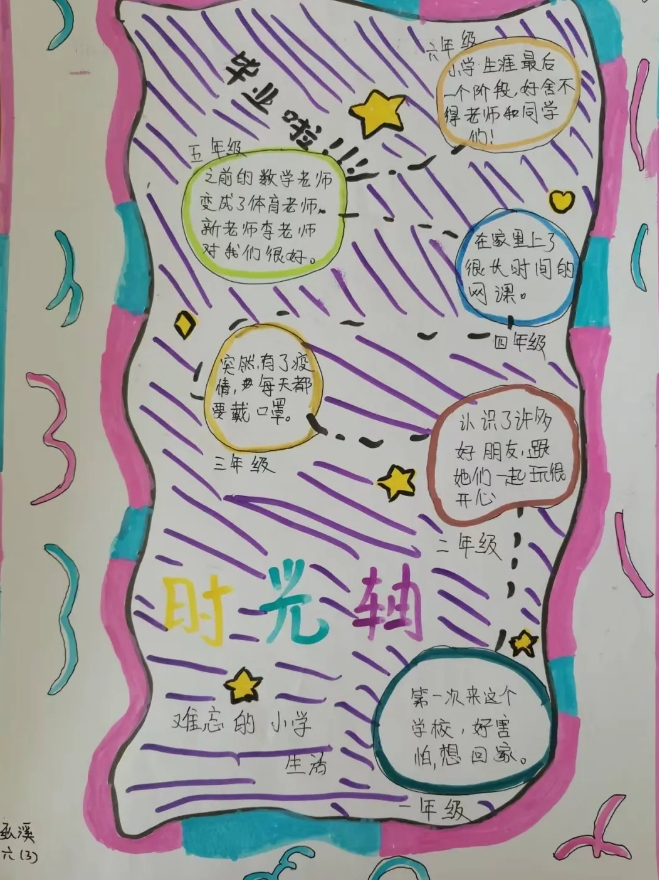 六年级
小学生涯最后
一个阶段，好舍不
得老师和同学
们！
毕业啦！！！
五年级
之前的数学老师
变成了体育老师，
新老师李老师
对我们很好。
在家里上了
很长时间的
网课。
四年级
突然有了疫
情，每天都
要戴口罩。
三年级
认识了许多
好朋友，跟
她们一起玩很
开心
二年级
时光轴
难忘的小学
生活
第一次来这个
学校，好害
怕，想回家。
一年级
溪
六(3)